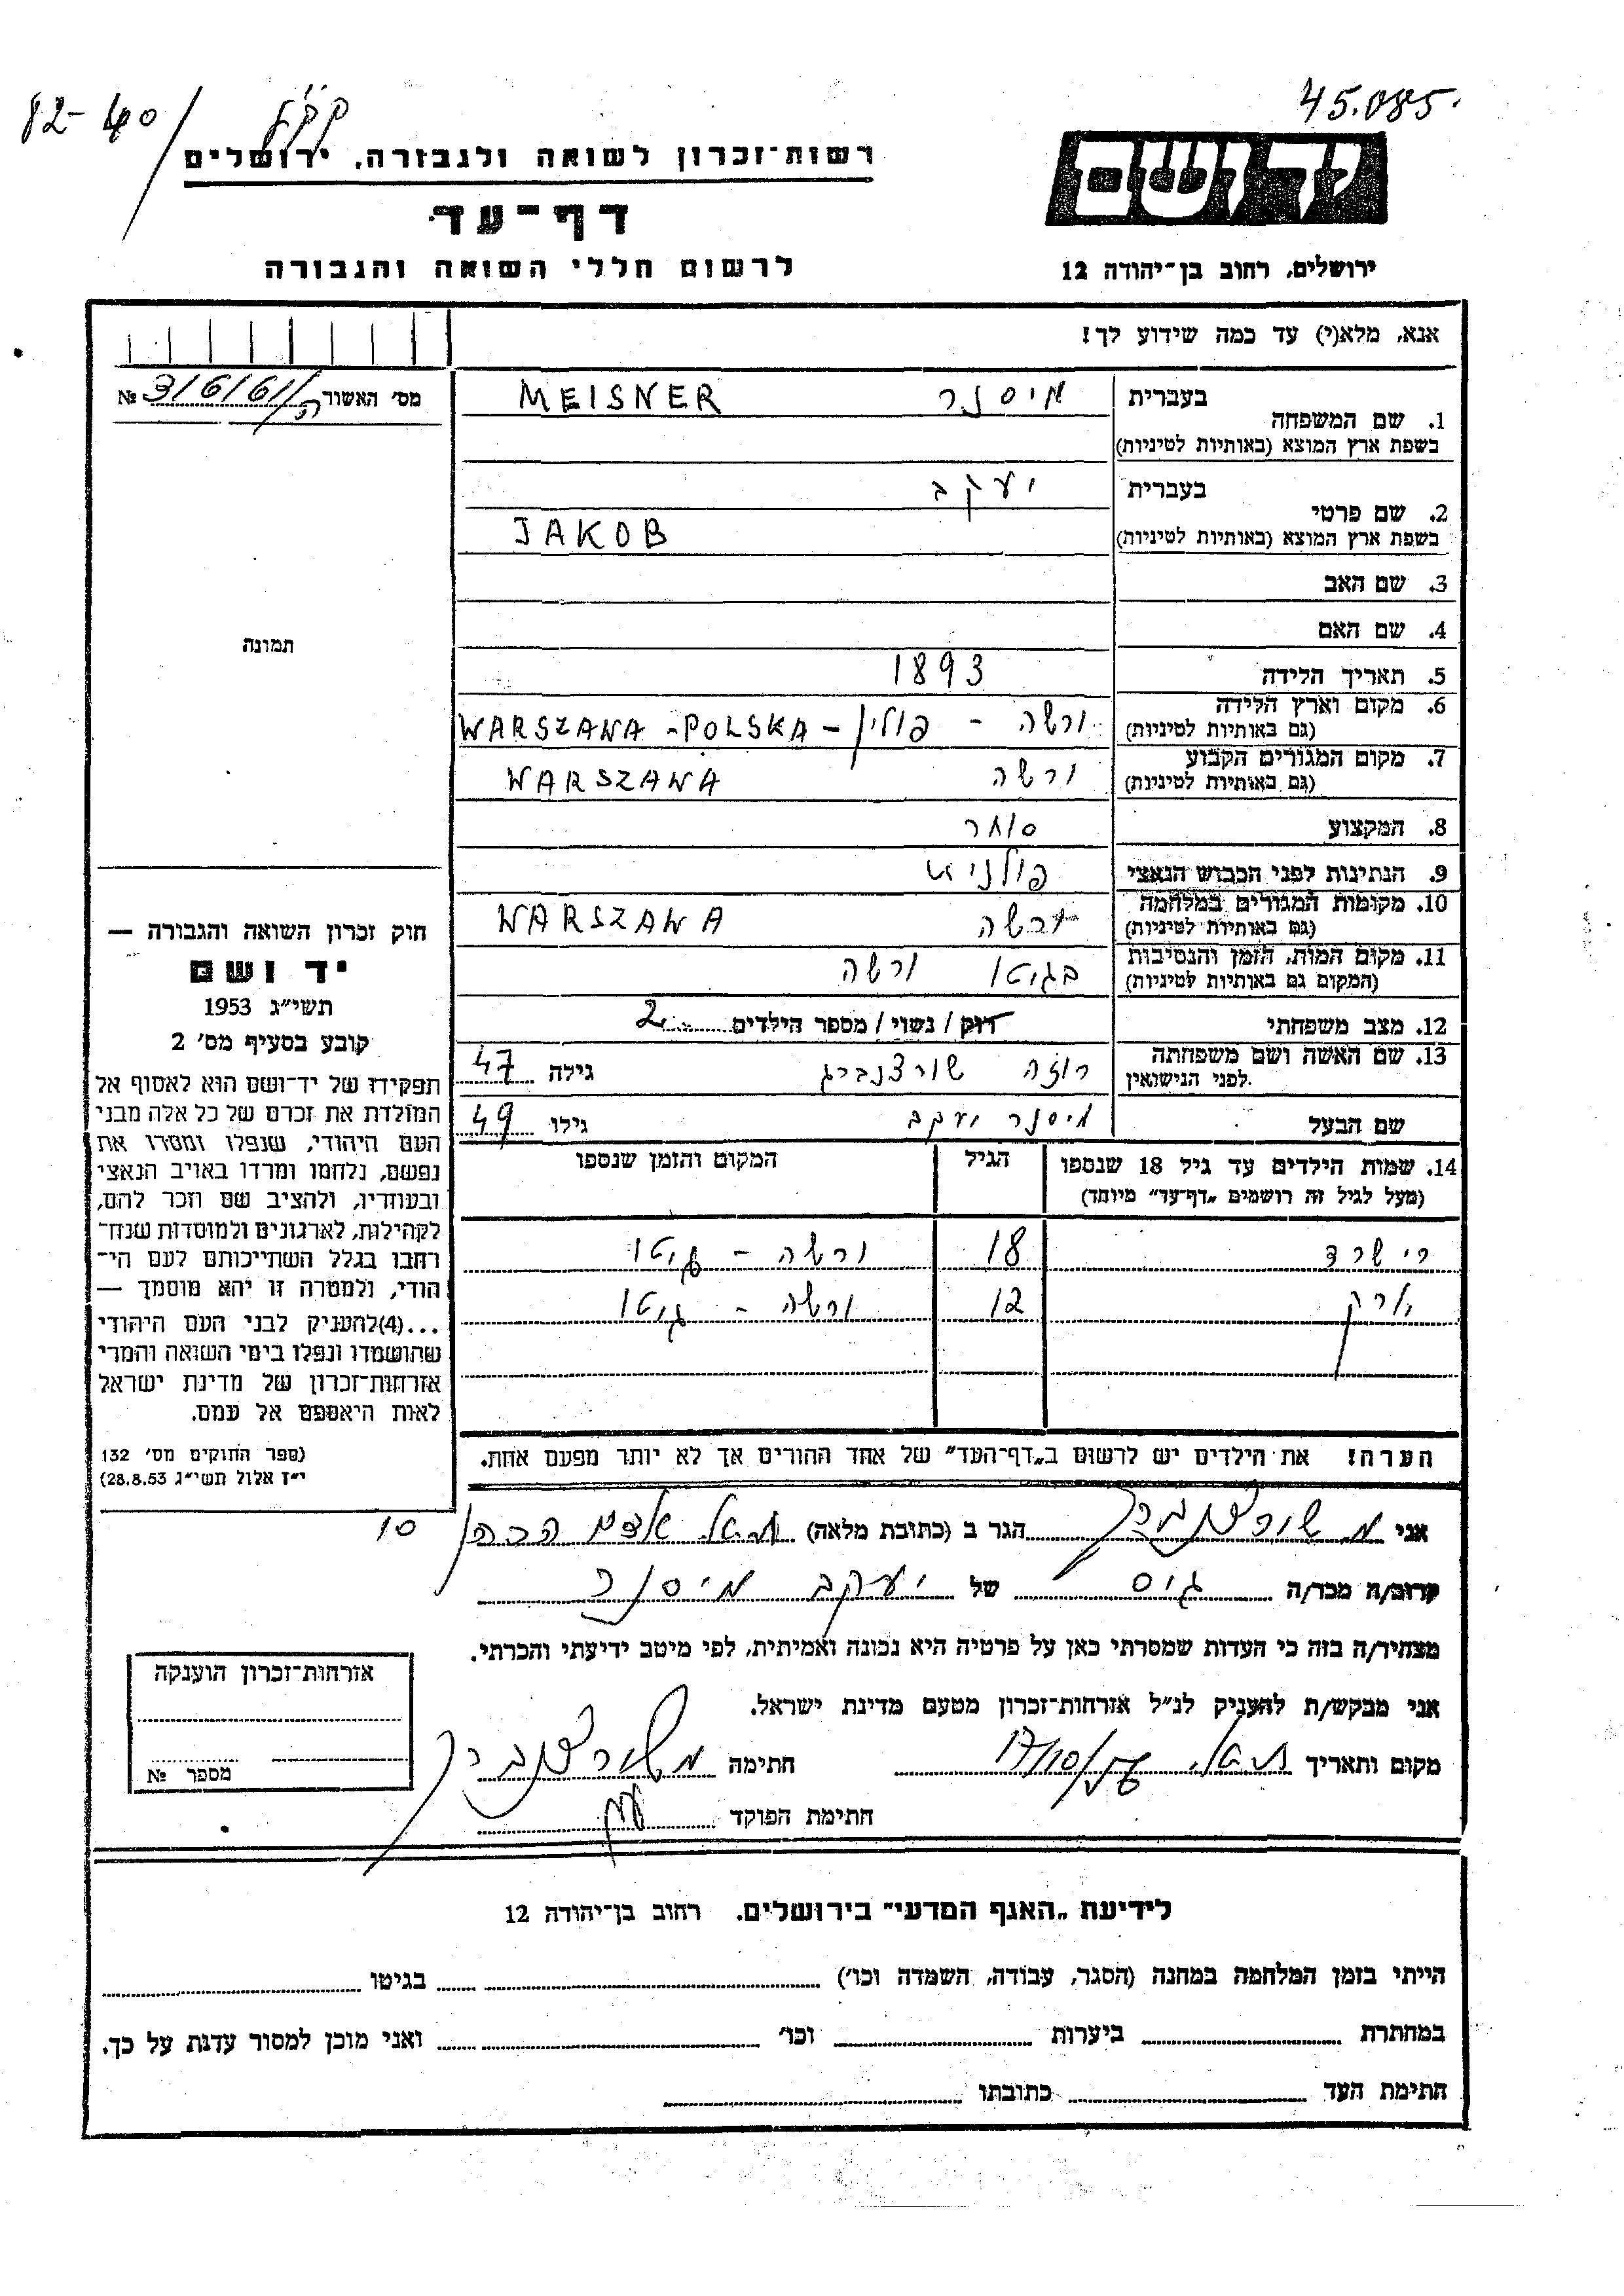 45.085
82-40/
יד ושם
רשות־זכרון לשואה ולגבורה, ירושלים
דף־עד
לרשום חללי השואה והגבורה
ירושלים, רחוב בן־יהודה 12
אנא, מלא(י) עד כמה שידוע לך!
מס׳ האשור № 3/6/61/ה
1. שם המשפחה
בעברית מיסנר MEISNER
בשפת ארץ המוצא (באותיות לטיניות)
2. שם פרטי
בעברית יעקב
בשפת ארץ המוצא (באותיות לטיניות) JAKOB
3. שם האב
4. שם האם
5. תאריך הלידה 1893
6. מקום וארץ הלידה
(גם באותיות לטיניות) ורשה - פולין - WARSZAWA - POLSKA
7. מקום המגורים הקבוע
(גם באותיות לטיניות) ורשה WARSZAWA
8. המקצוע סוחר
9. הנתינות לפני הכבוש הנאצי פולנית
10. מקומות המגורים במלחמה
(גם באותיות לטיניות) ורשה WARSZAWA
11. מקום המות, הזמן והנסיבות
(המקום גם באותיות לטיניות) בגיטו ורשה
12. מצב משפחתי רוק / נשוי / מספר הילדים 2
13. שם האשה ושם משפחתה
לפני הנישואין רוזה שורצנברג גילה 47
שם הבעל מיסנר יעקב גילו 49
14. שמות הילדים עד גיל 18 שנספו
(מעל לגיל זה רושמים „דף־עד" מיוחד)
הגיל
המקום והזמן שנספו
רישרד 18 ורשה - גיטו
יורק 12 ורשה - גיטו
הערה! את הילדים יש לרשום ב„דף־העד" של אחד ההורים אך לא יותר מפעם אחת.
תמונה
חוק זכרון השואה והגבורה —
יד ושם
תשי״ג 1953
קובע בסעיף מס׳ 2
תפקידו של יד־ושם הוא לאסוף אל
המולדת את זכרם של כל אלה מבני
העם היהודי, שנפלו ומסרו את
נפשם, נלחמו ומרדו באויב הנאצי
ובעוזריו, ולהציב שם וזכר להם,
לקהילות, לארגונים ולמוסדות שנח־
רחבו בגלל השתייכותם לעם הי־
הודי, ולמטרה זו יהא מוסמך —
...(4)להעניק לבני העם היהודי
שהושמדו ונפלו בימי השואה והמרי
אזרחות־זכרון של מדינת ישראל
לאות היאספם אל עמם.
(ספר החוקים מס׳ 132
י״ז אלול תשי״ג 28.8.53)
אני מ. שורצנברג הגר ב (כתובת מלאה) ת"א אדם הכהן 10
קרוב/ה מכר/ה גיס של יעקב מיסנר
מצהיר/ה בזה כי העדות שמסרתי כאן על פרטיה היא נכונה ואמיתית, לפי מיטב ידיעתי והכרתי.
אני מבקש/ת להעניק לנ״ל אזרחות־זכרון מטעם מדינת ישראל.
מקום ותאריך ת"א 17/10/ חתימה מ שורצנברג
חתימת הפוקד
אזרחות־זכרון הוענקה
מספר №
לידיעת „האגף המדעי" בירושלים, רחוב בן־יהודה 12
הייתי בזמן המלחמה במחנה (הסגר, עבודה, השמדה וכו׳) בגיטו
במחתרת ביערות וכו׳ ואני מוכן למסור עדות על כך.
חתימת העד כתובתו